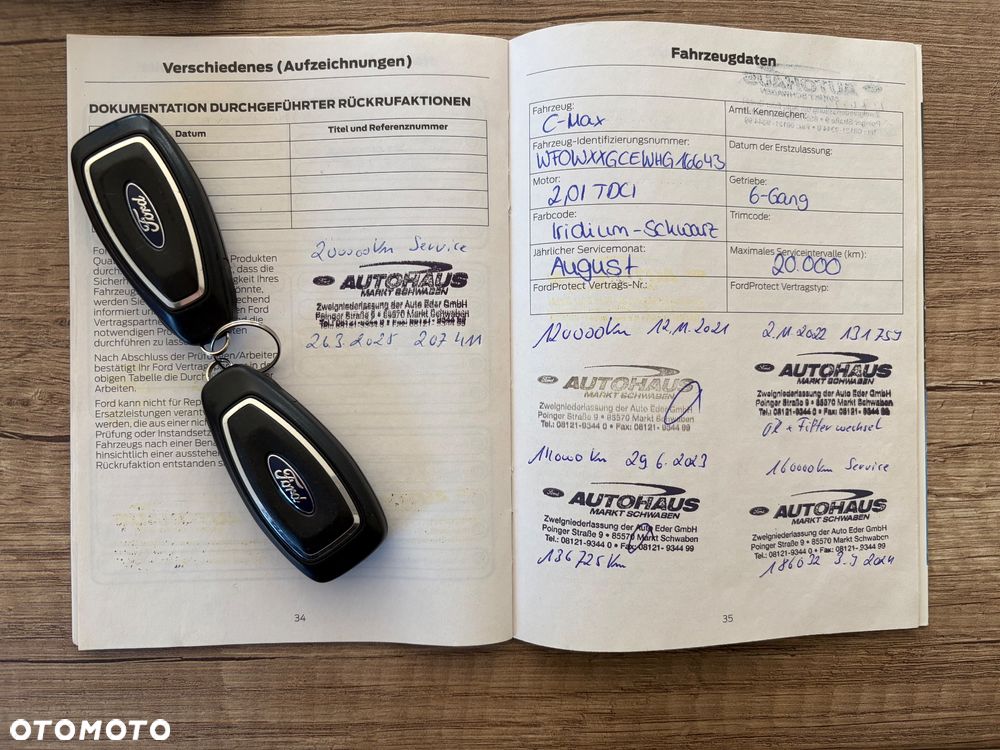 Verschiedenes (Aufzeichnungen)
DOKUMENTATION DURCHGEFÜHRTER RÜCKRUFAKTIONEN
Datum
Titel und Referenznummer
Produkten
dass die
Sicherhe
igkeit Ihres
Fahrzeug
werden Sie
echend
informiert un
Ford
Vertragspartne
die
notwendigen Prü
durchführen zu lass
Nach Abschluss der Prüf
en/Arbeiten
bestätigt Ihr Ford Vertrag
in der
obigen Tabelle die Durch
Arbeiten.
Ford kann nicht für Rep
Ersatzleistungen verant
werden, die aus einer nich
Prüfung oder Instandsetz
Fahrzeugs nach einer Bena
hinsichtlich einer aussteher
Rückrufaktion entstanden s
200000km Service
AUTOHAUS
MARKT SCHWABEN
Zweigniederlassung der Auto Eder GmbH
Poinger Straße 9 • 85570 Markt Schwaben
Tel.: 08121-9344 0 • Fax: 08121-9344 99
26.3.2025 207411
34
Ford
Ford
Fahrzeugdaten
AUTOHAUS
Fahrzeug:
C-Max
Amtl. Kennzeichen:
Fahrzeug-Identifizierungsnummer:
WF0WXXGCEWHG16643
Datum der Erstzulassung:
Motor:
2,0l TDCI
Getriebe:
6-Gang
Farbcode:
Iridium-Schwarz
Trimcode:
Jährlicher Servicemonat:
August
Maximales Serviceintervalle (km):
20.000
FordProtect Vertrags-Nr.:
FordProtect Vertragstyp:
120000km 12.11.2021
Ford AUTOHAUS
MARKT SCHWABEN
Zweigniederlassung der Auto Eder GmbH
Poinger Straße 9 • 85570 Markt Schwaben
Tel.: 08121-9344 0 • Fax: 08121-9344 99
2.11.2022
Ford AUTOHAUS
MARKT SCHWABEN
Zweigniederlassung der Auto Eder GmbH
Poinger Straße 9 • 85570 Markt Schwaben
Tel.: 08121-9344 0 • Fax: 08121-9344 99
Öl + Filterwechsel
140000 km 29.6.2023
Ford AUTOHAUS
MARKT SCHWABEN
Zweigniederlassung der Auto Eder GmbH
Poinger Straße 9 • 85570 Markt Schwaben
Tel.: 08121-9344 0 • Fax: 08121-9344 99
136725km
160000km Service
Ford AUTOHAUS
MARKT SCHWABEN
Zweigniederlassung der Auto Eder GmbH
Poinger Straße 9 • 85570 Markt Schwaben
Tel.: 08121-9344 0 • Fax: 08121-9344 99
186032
35
OTOMOTO